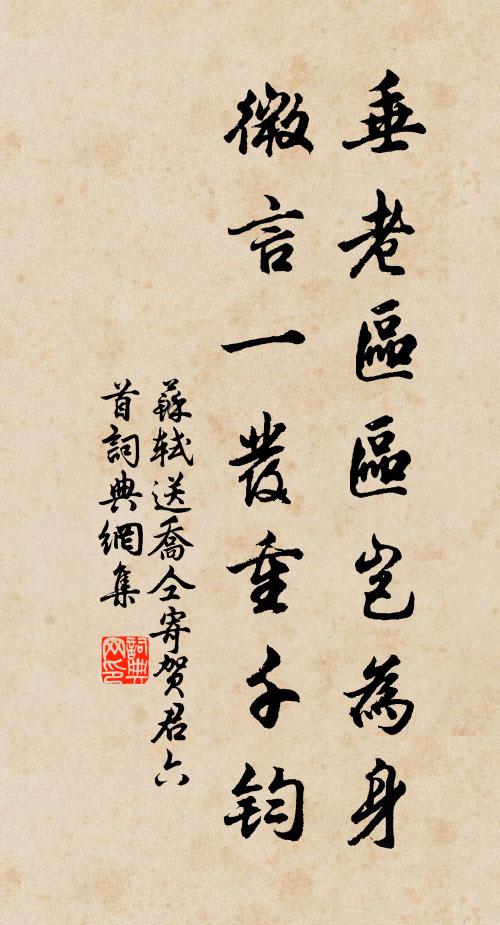 垂老區區豈為身
微言一發重千鈞
蘇軾送喬仝寄賀君六
首詞典網集
詞典网印